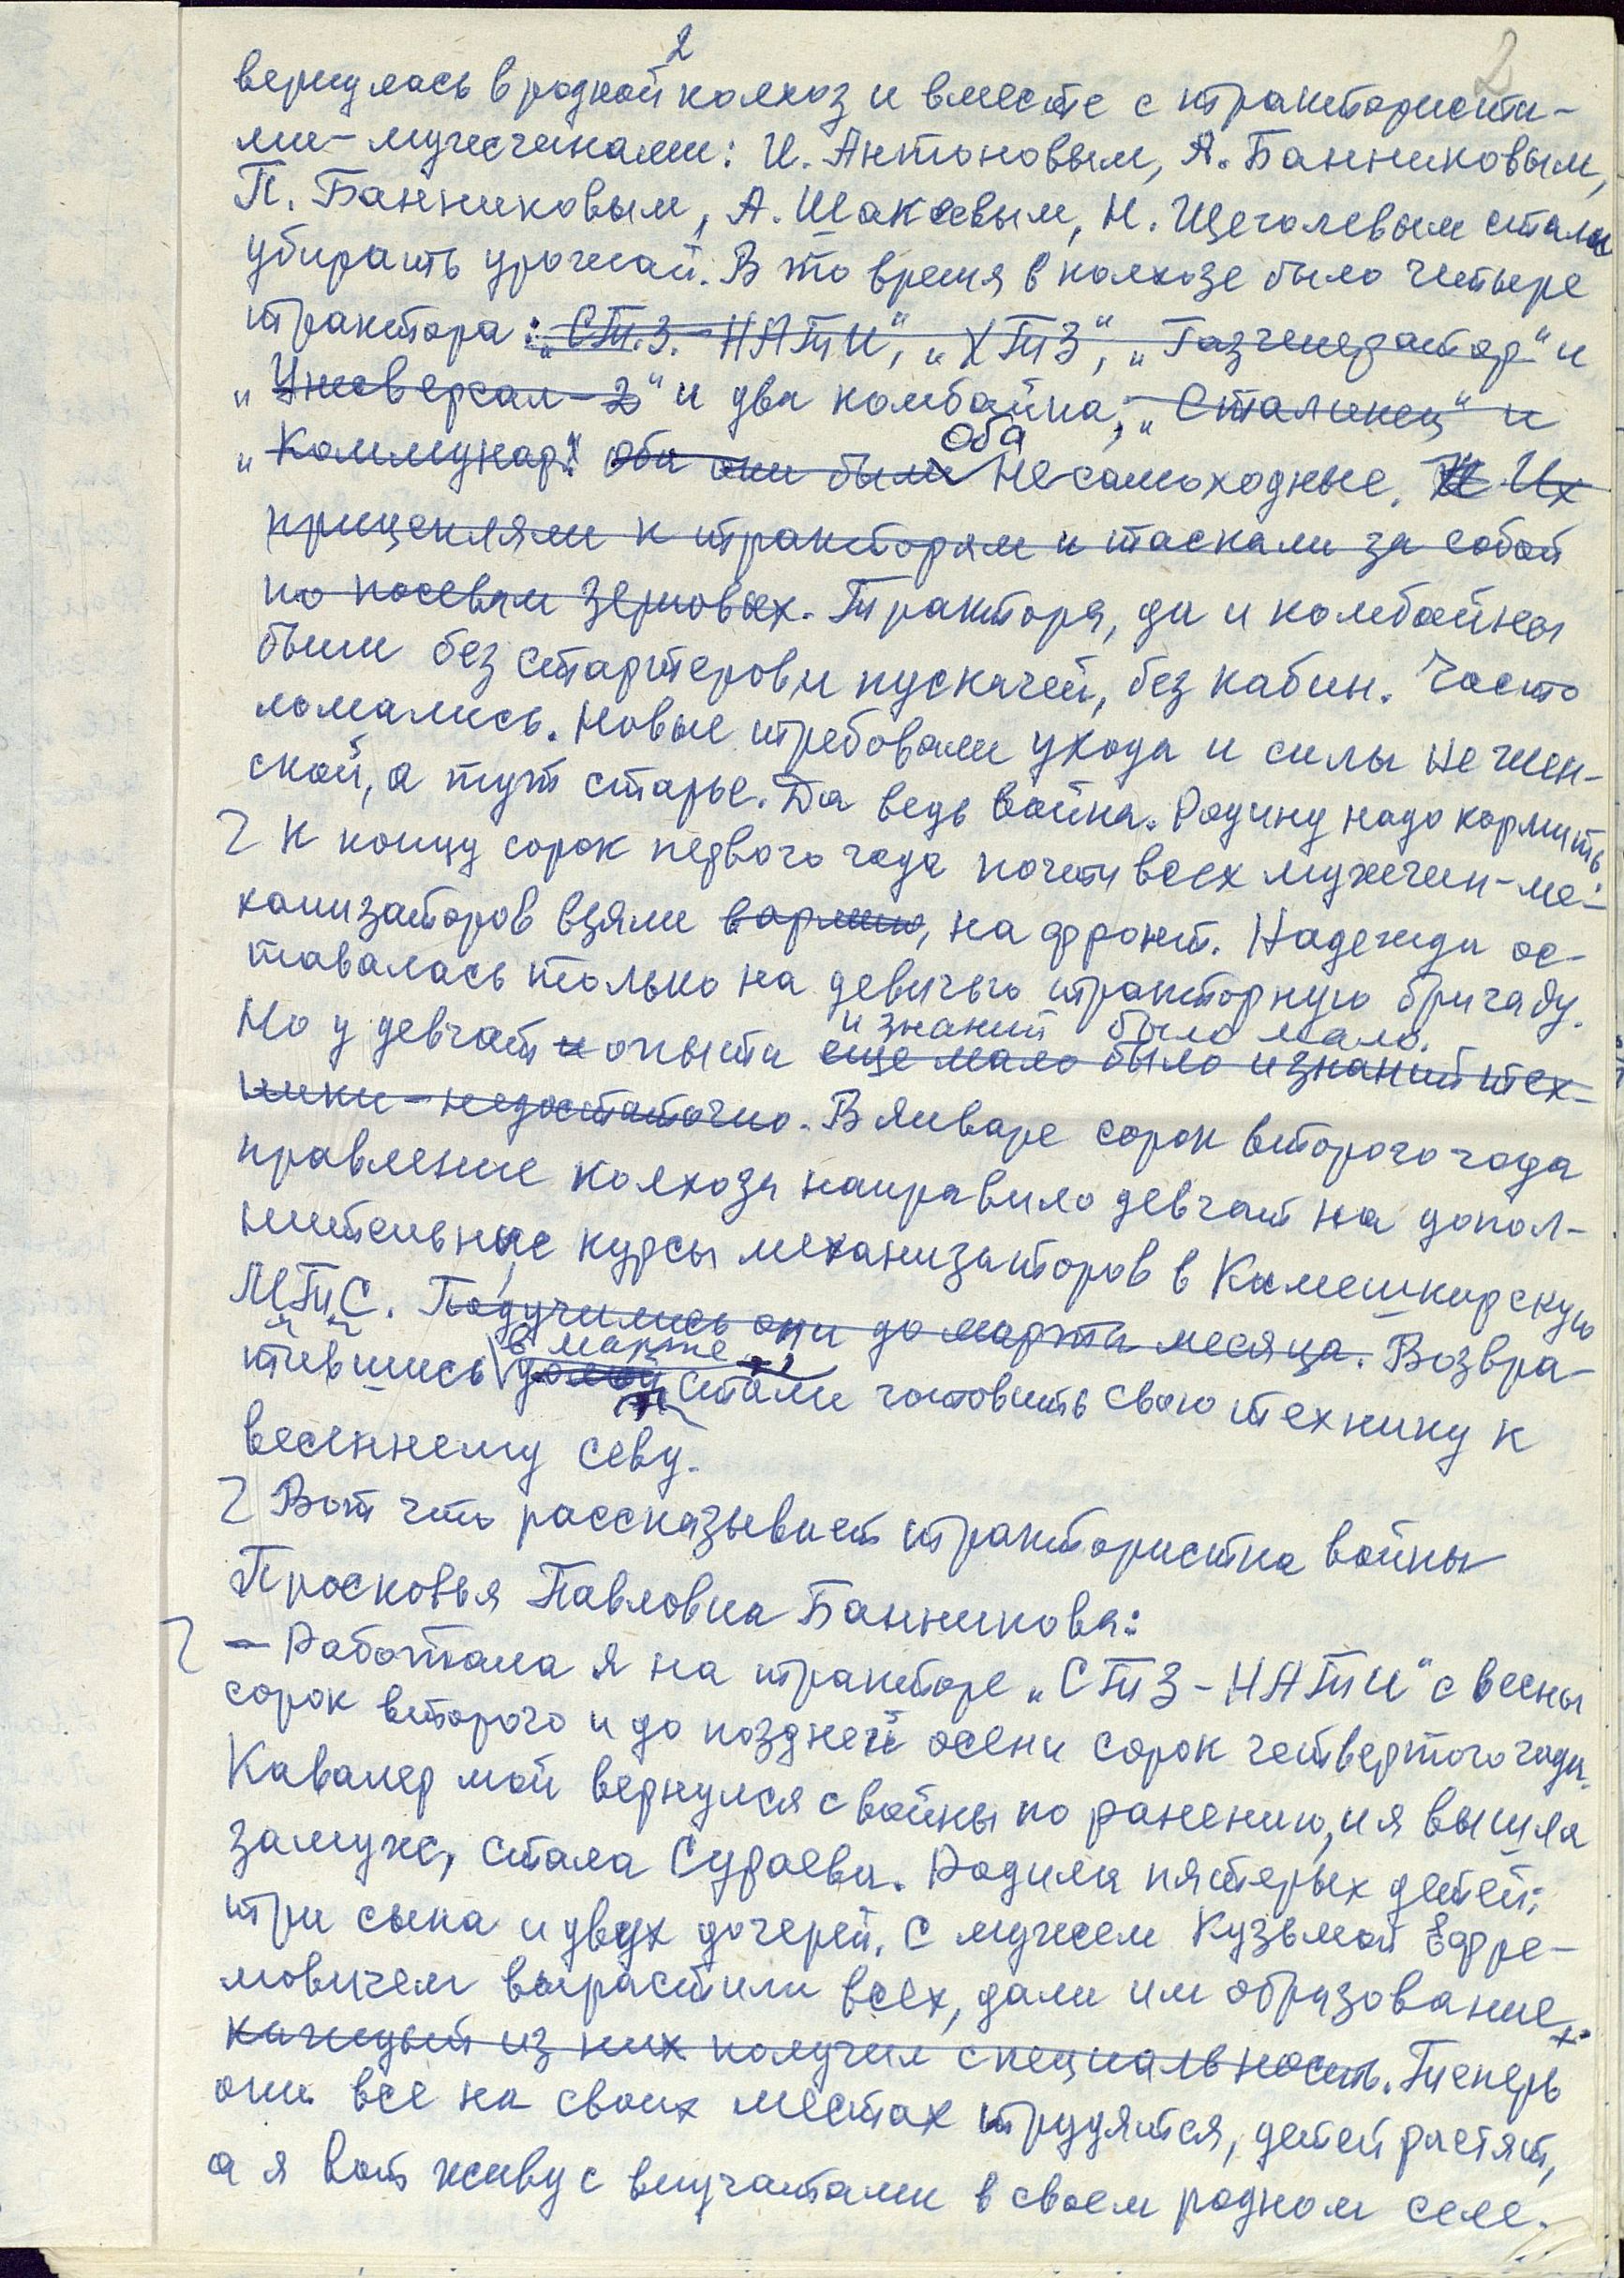 2
2
вернулась в родной колхоз и вместе с трактористи-
ми-мужчинами: И. Антоновым, А. Банниковым,
П. Банниковым, А. Шакеевым, Н. Щеголевым стали
убирать урожай. В то время в колхозе было четыре
трактора: „СТ.З.-НАТИ", „ХТЗ", „Газгенератор" и
„Универсал-2" и два комбайна, „Сталинец" и
„Коммунар". Оба они были Оба несамоходные. Их
прицепляли к тракторам и таскали за собой
по посевам зерновых. Трактора, да и комбайны
были без стартеров, и пускачей, без кабин. Часто
ломались. Новые требовали ухода и силы не жен-
ской, а тут старье. Да ведь война. Родину надо кормить.
К концу сорок первого года почти всех мужчин-ме-
ханизаторов взяли в армию, на фронт. Надежда ос-
тавалась только на девичью тракторную бригаду.
и знаний было мало.
Но у девчат и опыта еще мало было и знаний тех-
ники - недостаточно. В январе сорок второго года
правление колхоза направило девчат на допол-
нительные курсы механизаторов в Камешкирскую
МТС. Подучились они до марта месяца. Возвра-
в марте
тившись домой стали готовить свою технику к
весеннему севу.
Вот что рассказывает трактористка войны
Просковья Павловна Банникова:
- Работала я на тракторе „СТЗ-НАТИ" с весны
сорок второго и до поздней осени сорок четвертого года.
Кавалер мой вернулся с войны по ранению, и я вышла
замуж, стала Сураева. Родила пятерых детей:
три сына и двух дочерей. С мужем Кузьмой Ефре-
мовичем вырастили всех, дали им образование,
каждый из них получил специальность. Теперь
они все на своих местах трудятся, детей растят,
а я вот живу с внучатами в своем родном селе.